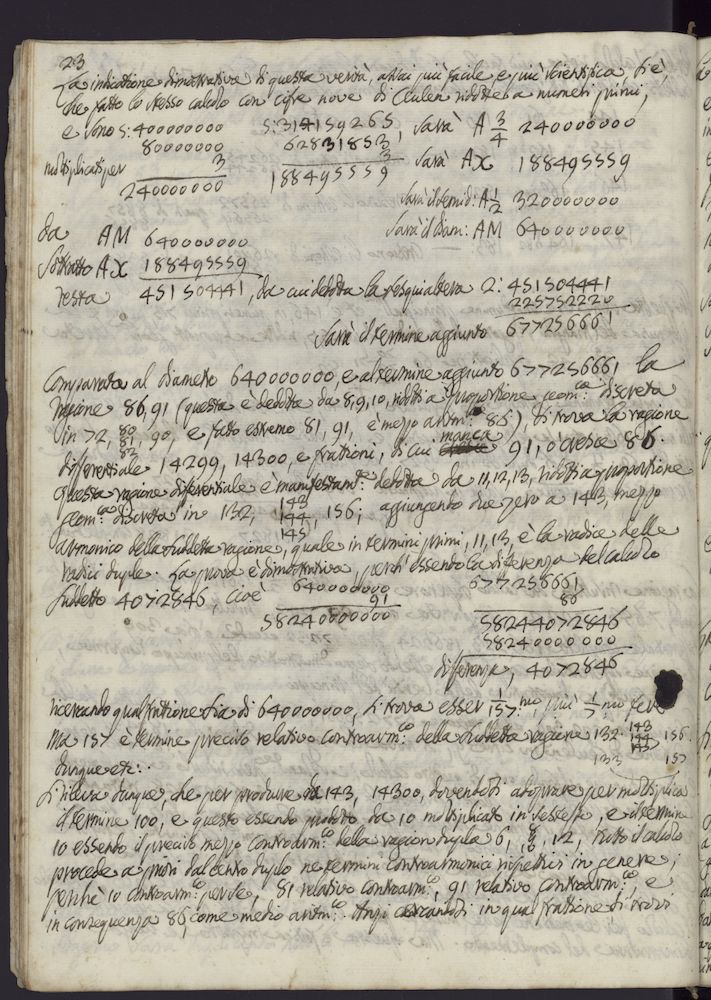 23
La indicatione dimostrativa di questa verità, assai più facile, e più scientifica, si è,
che fatto lo stesso calcolo con cifre nove di Ceulen ridotte a numeri primi,
e sono 5: 400000000 5: 314159265, sarà A 3/4 240000000
80000000 62831853
moltiplicati per 3 3 sarà AX 188495559
240000000 188495559
sarà il semid: A 1/2 320000000
da AM 640000000 sarà il Diam: AM 640000000
sottratto AX 188495559
resta 451504441, da cui dedotta la sesquialtera 2: 451504441
225752220
sarà il termine aggiunto 677256661
Comparata al diametro 640000000, e al termine aggiunto 677256661 la
ragione 86, 91 (questa è dedotta da 8, 9, 10, ridotti a proportione geom:ca discreta
in 72, 80 81 82, 90, e fatto estremo 81, 91, è mezo aritm:co 86), si trova la ragione
differentiale 14299, 14300, e frationi, di cui manca 91, o cresce 86.
Questa ragione differentiale è manifestam:te dedotta da 11, 12, 13, ridotti a proportione
geom:ca discreta in 132, 143 144 145, 156; aggiungendo due zero a 143, mezzo
armonico della suddetta ragione, quale in termini primi, 11, 13, è la radice delle
radici duple. La prova è dimostrativa, perché essendo la differenza del calcolo
suddetto 4072846, cioè 640000000 677256661
91 86
58240000000 58244072846
58240000000
differenza, 4072846
ricercando qual fratione sia di 640000000, si trova esser 1/157:mo più 1/7:mo fere
Ma 157 è termine preciso relativo controarm:co della suddetta ragione 132 143 144 145 156
dunque etc:. 133 157
Si rileva dunque, che per produrre da 143, 14300, dovendosi adoprare per moltiplica
il termine 100, e questo essendo prodotto da 10 moltiplicato in se stesso, e il termine
10 essendo il preciso mezzo controarm:co della ragion dupla 6, 8 9 10, 12, tutto il calcolo
procede a priori dal centro duplo ne termini controarmonici rispettivi in genere;
perchè 10 controarm:co per se, 81 relativo controarm:co, 91 relativo controarm:co, e
in conseguenza 86, come medio aritm:co. Anzi cercandosi in qual fratione si trovi